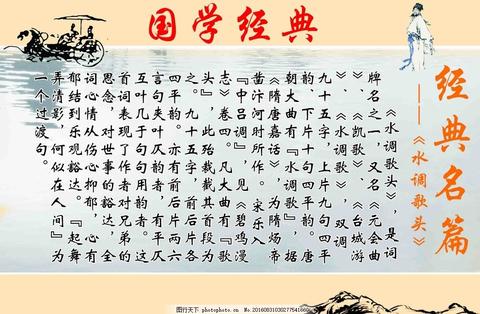 国学经典
经典名篇
——《水调歌头》
《水调歌头》，是词
牌名之一，又名《元会曲
》、《凯歌》、《台城游
》、《水调歌》，双调
九十五字，上片九句四平
韵、下片十句四平韵。唐
朝大曲有『水调歌』，据
《隋唐嘉话》，为隋炀帝
凿汴河时所作。宋乐入
『中吕调』，见《碧鸡漫
志》卷四。凡大曲有『歌
头』，此殆裁截其首段为
之。九十五字，前后片各
四平韵。亦有前后片两六
言句夹叶仄韵者，有平仄
互叶几于句句用韵者。这
首词表现了作者对兄弟的
思念，对世事的豁达，全
词心情从伤心抑郁，心有
郁结到乐观豁达。『起舞
弄清影，何似在人间』为
一个过渡句。